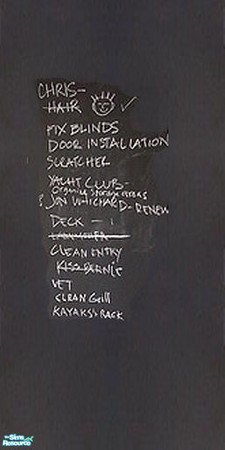 CHRIS-
HAIR
FIX BLINDS
DOOR INSTALLATION
SCRATCHER
YACHT CLUB-
ORGANIZE STORAGE
? JON WHICHARD-RENEW
DECK -
CLEAN ENTRY
KISS BERNIE
VET
CLEAN Grill
KAYAKS RACK
The Sims Resource